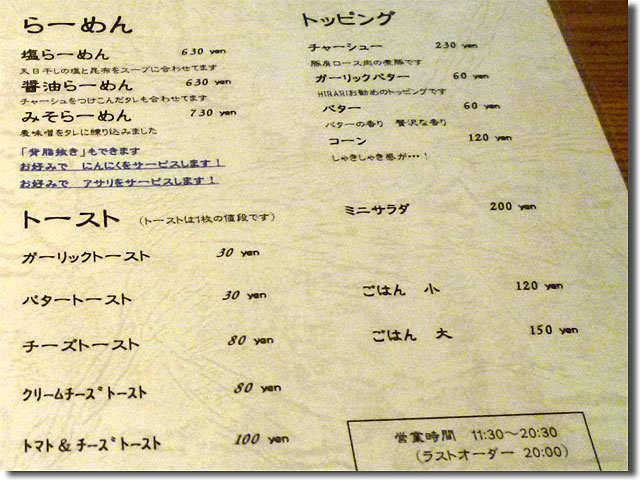 らーめん
塩らーめん 630 yen
天日干しの塩と昆布をスープに合わせてます
醤油らーめん 630 yen
チャーシュをつけこんだタレも合わせてます
みそらーめん 730 yen
麦味噌をタレに練り込みました
「背脂抜き」もできます
お好みで にんにくをサービスします！
お好みで アサリをサービスします！
トースト （トーストは1枚の値段です）
ガーリックトースト 30 yen
バタートースト 30 yen
チーズトースト 80 yen
クリームチーズトースト 80 yen
トマト＆チーズトースト 100 yen
トッピング
チャーシュー 230 yen
豚肩ロース肉の煮豚です
ガーリックバター 60 yen
HIRARIお勧めのトッピングです
バター 60 yen
バターの香り 贅沢な香り
コーン 120 yen
しゃきしゃき感が・・・！
ミニサラダ 200 yen
ごはん 小 120 yen
ごはん 大 150 yen
営業時間 11:30～20:30
（ラストオーダー 20:00）